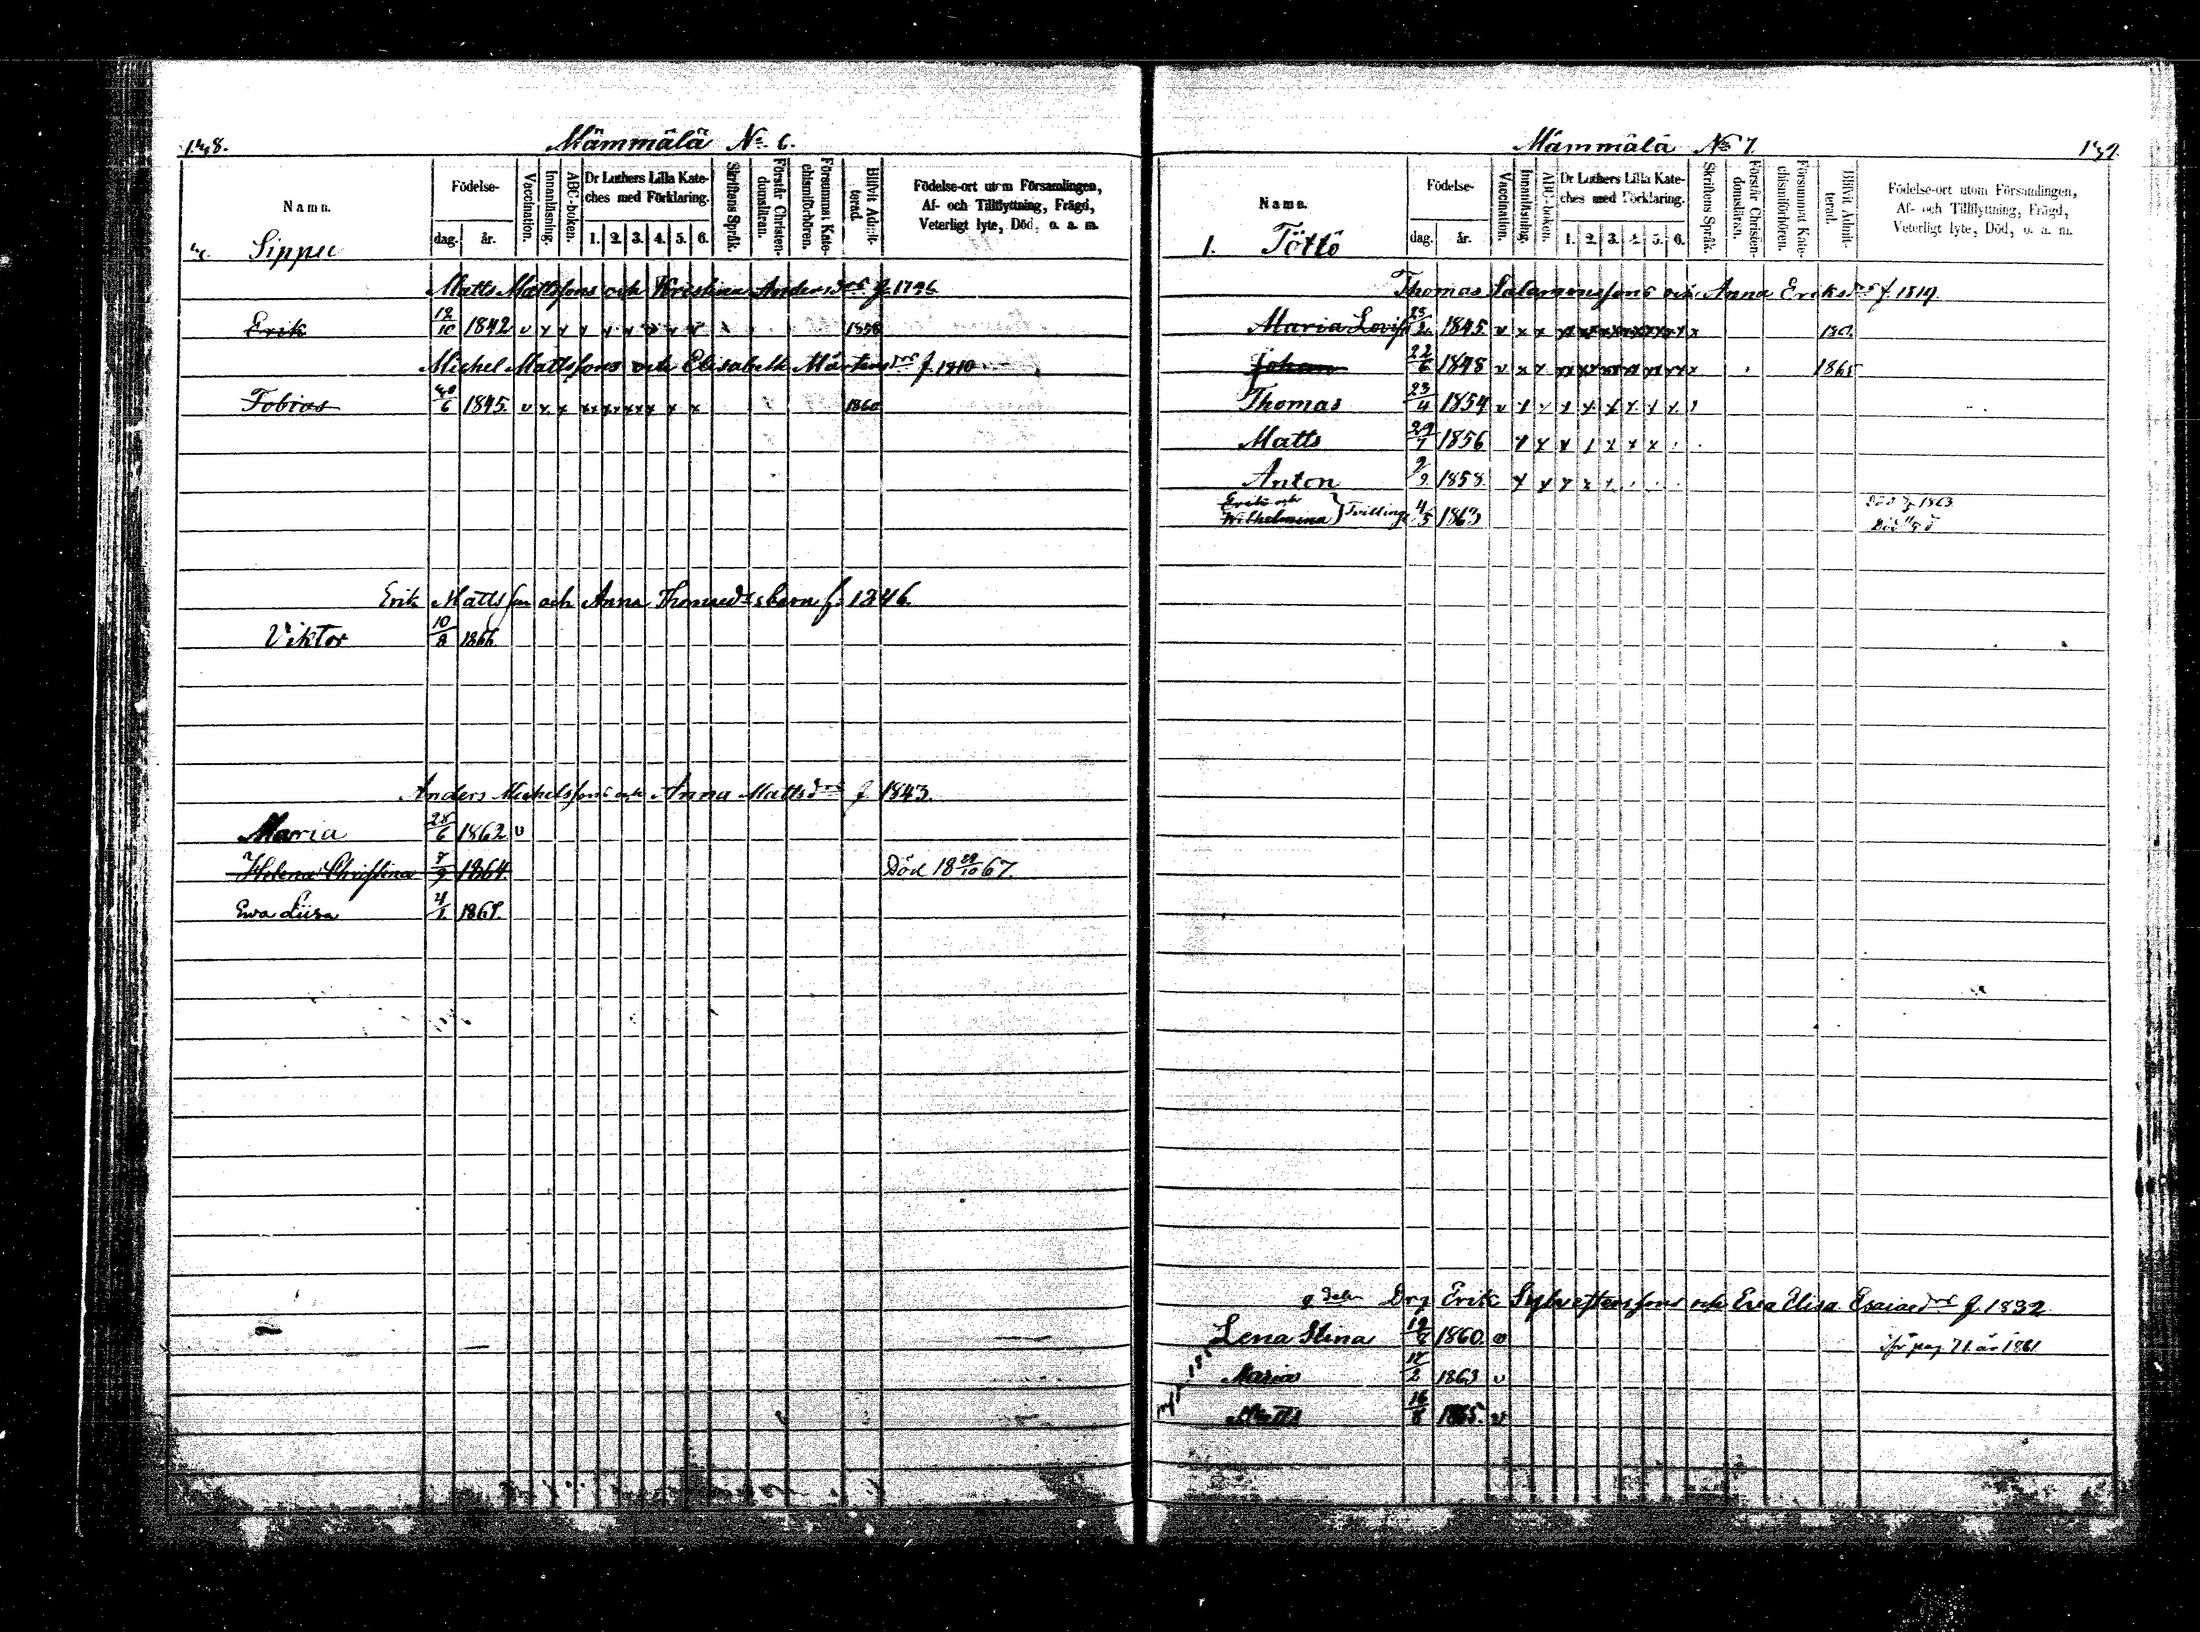 Mämmälä No 6.
Namn.
Födelse-
dag. år.
Vaccination.
Innanläsning.
ABC-boken.
Dr Luthers Lilla Kate-
ches med Förklaring.
1. 2. 3. 4. 5. 6.
Skriftens Språk.
Förstår Christen-
domsläran.
Försummat Kate-
chismiförhören.
Blifvit Admit-
terad.
Födelse-ort utom Församlingen,
Af- och Tillflyttning, Frägd,
Veterligt lyte, Död, o. a. m.
Sippu
Matts Mattssons och Kristina Andersdrs f. 1796
Erik 12/10 1842 v x x x x x x x x 1858
Michel Mattssons och Elisabeth Mårtensdrs f. 1810
Tobias 20/6 1845. v x x xx xx xx x x x 1860
Erik Mattsson och Anna Thomasdrs barn f. 1846.
Viktor 10/8 1866
Anders Michelssons och Anna Mattsdrs f 1843.
Maria 28/6 1862 v
Helena Christina 7/9 1864. Död 18 29/10 67.
Ewa Liisa 4/1 1867.
Mämmälä No 7.
Namn.
Födelse-
dag. år.
Vaccination.
Innanläsning.
ABC-boken.
Dr Luthers Lilla Kate-
ches med Förklaring.
1. 2. 3. 4. 5. 6.
Skriftens Språk.
Förstår Christen-
domsläran.
Försummat Kate-
chismiförhören.
Blifvit Admit-
terad.
Födelse-ort utom Församlingen,
Af- och Tillflyttning, Frägd,
Veterligt lyte, Död, o. a. m.
1. Töttö
Thomas Salamonssons och Anna Eriksdrs f. 1819.
Maria Lovisa 25/2 1845 v x x xx xx xx xx xx xx x
Johan 22/6 1848 v x x xx xx xx xx xx xx x 1865
Thomas 23/4 1854 v x x x x x x x x
Matts 29/7 1856 x x x x x x x
Anton 9/9 1858 x x x x x
Erik och
Wilhelmina } Tvilling 4/5 1863 Död 1863
Död
Drg Erik Sylvesterssons och Eva Elisa Esaiaedrs f. 1832
Lena Stina 19/7 1860. v ifr pag 71 år 1861
Maria 17/2 1863 v
Matts 16/8 1865. v